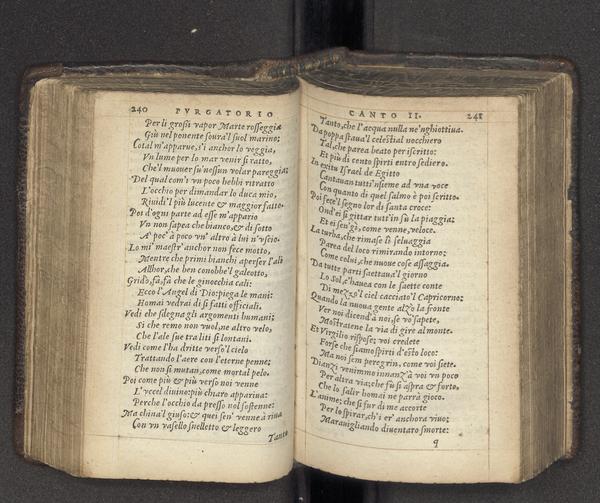 240 PVRGATORIO
Per li grossi vapor Marte rosseggia
Giù nel ponente soura'l suol marino;
Cotal m'apparue, s'i anchor lo veggia,
Vn lume per lo mar venir sì ratto,
Che'l muouer su' nessun volar pareggia:
Del qual com'i vn poco hebbi ritratto
L'occhio per dimandar lo duca mio,
Riuidi'l più lucente & maggior fatto.
Poi d'ogni parte ad esso m'appario
Vn non sapea che bianco, & di sotto
A poc' à poco vn' altro à lui n'vscio.
Lo mi maestr' anchor non fece motto,
Mentre che primi bianchi aperser l'ali
Allhor, che ben conobbe'l galeotto,
Gridò, fà, fà che le ginocchia cali:
Ecco l'Angel di Dio: piega le mani:
Homai vedrai di sì fatti officiali.
Vedi che sdegna gli argomenti humani;
Sì che remo non vuol, ne altro velo,
Che l'ale sue tra liti sì lontani.
Vedi come l'ha dritte verso'l cielo
Trattando l'aere con l'eterne penne;
Che non si mutan, come mortal pelo.
Poi come più & più verso noi venne
L'vccel diuino; più chiaro appariua:
Perche l'occhio da presso nol sostenne:
Ma china'l giuso: & quei sen' venne à riua
Con vn vasello snelletto & leggero
Tanto
CANTO II. 241
Tanto, che l'acqua nulla ne'nghiottiua.
Da poppa staua'l celestial nocchero
Tal, che parea beato per iscritto:
Et più di cento spirti entro sediero.
In exitu Israel de Egitto
Cantauan tutti'nsieme ad vna voce
Con quanto di quel salmo è poi scritto.
Poi fece'l segno lor di santa croce:
Ond' ei si gittar tutt'in sù la piaggia;
Et ei sen' gì, come venne, veloce.
La turba, che rimase lì seluaggia
Parea del loco rimirando intorno;
Come colui, che nuoue cose assaggia.
Da tutte parti saettaua'l giorno
Lo Sol, c'hauea con le saette conte
Di mezzo'l ciel cacciato'l Capricorno;
Quando la nuoua gente alzò la fronte
Ver noi dicend' à noi, se vo' sapete,
Mostratene la via di gire al monte.
Et Virgilio rispose; voi credete
Forse che siamo spirti d'esto loco:
Ma noi sem peregrin, come voi siete.
Dianzi venimmo innanz' à voi vn poco
Per altra via; che fù sì aspra & forte,
Che lo salir homai ne parrà gioco.
L'anime; che si fur di me accorte
Per lo spirar, ch'i er' anchora viuo;
Marauigliando diuentaro smorte:
q